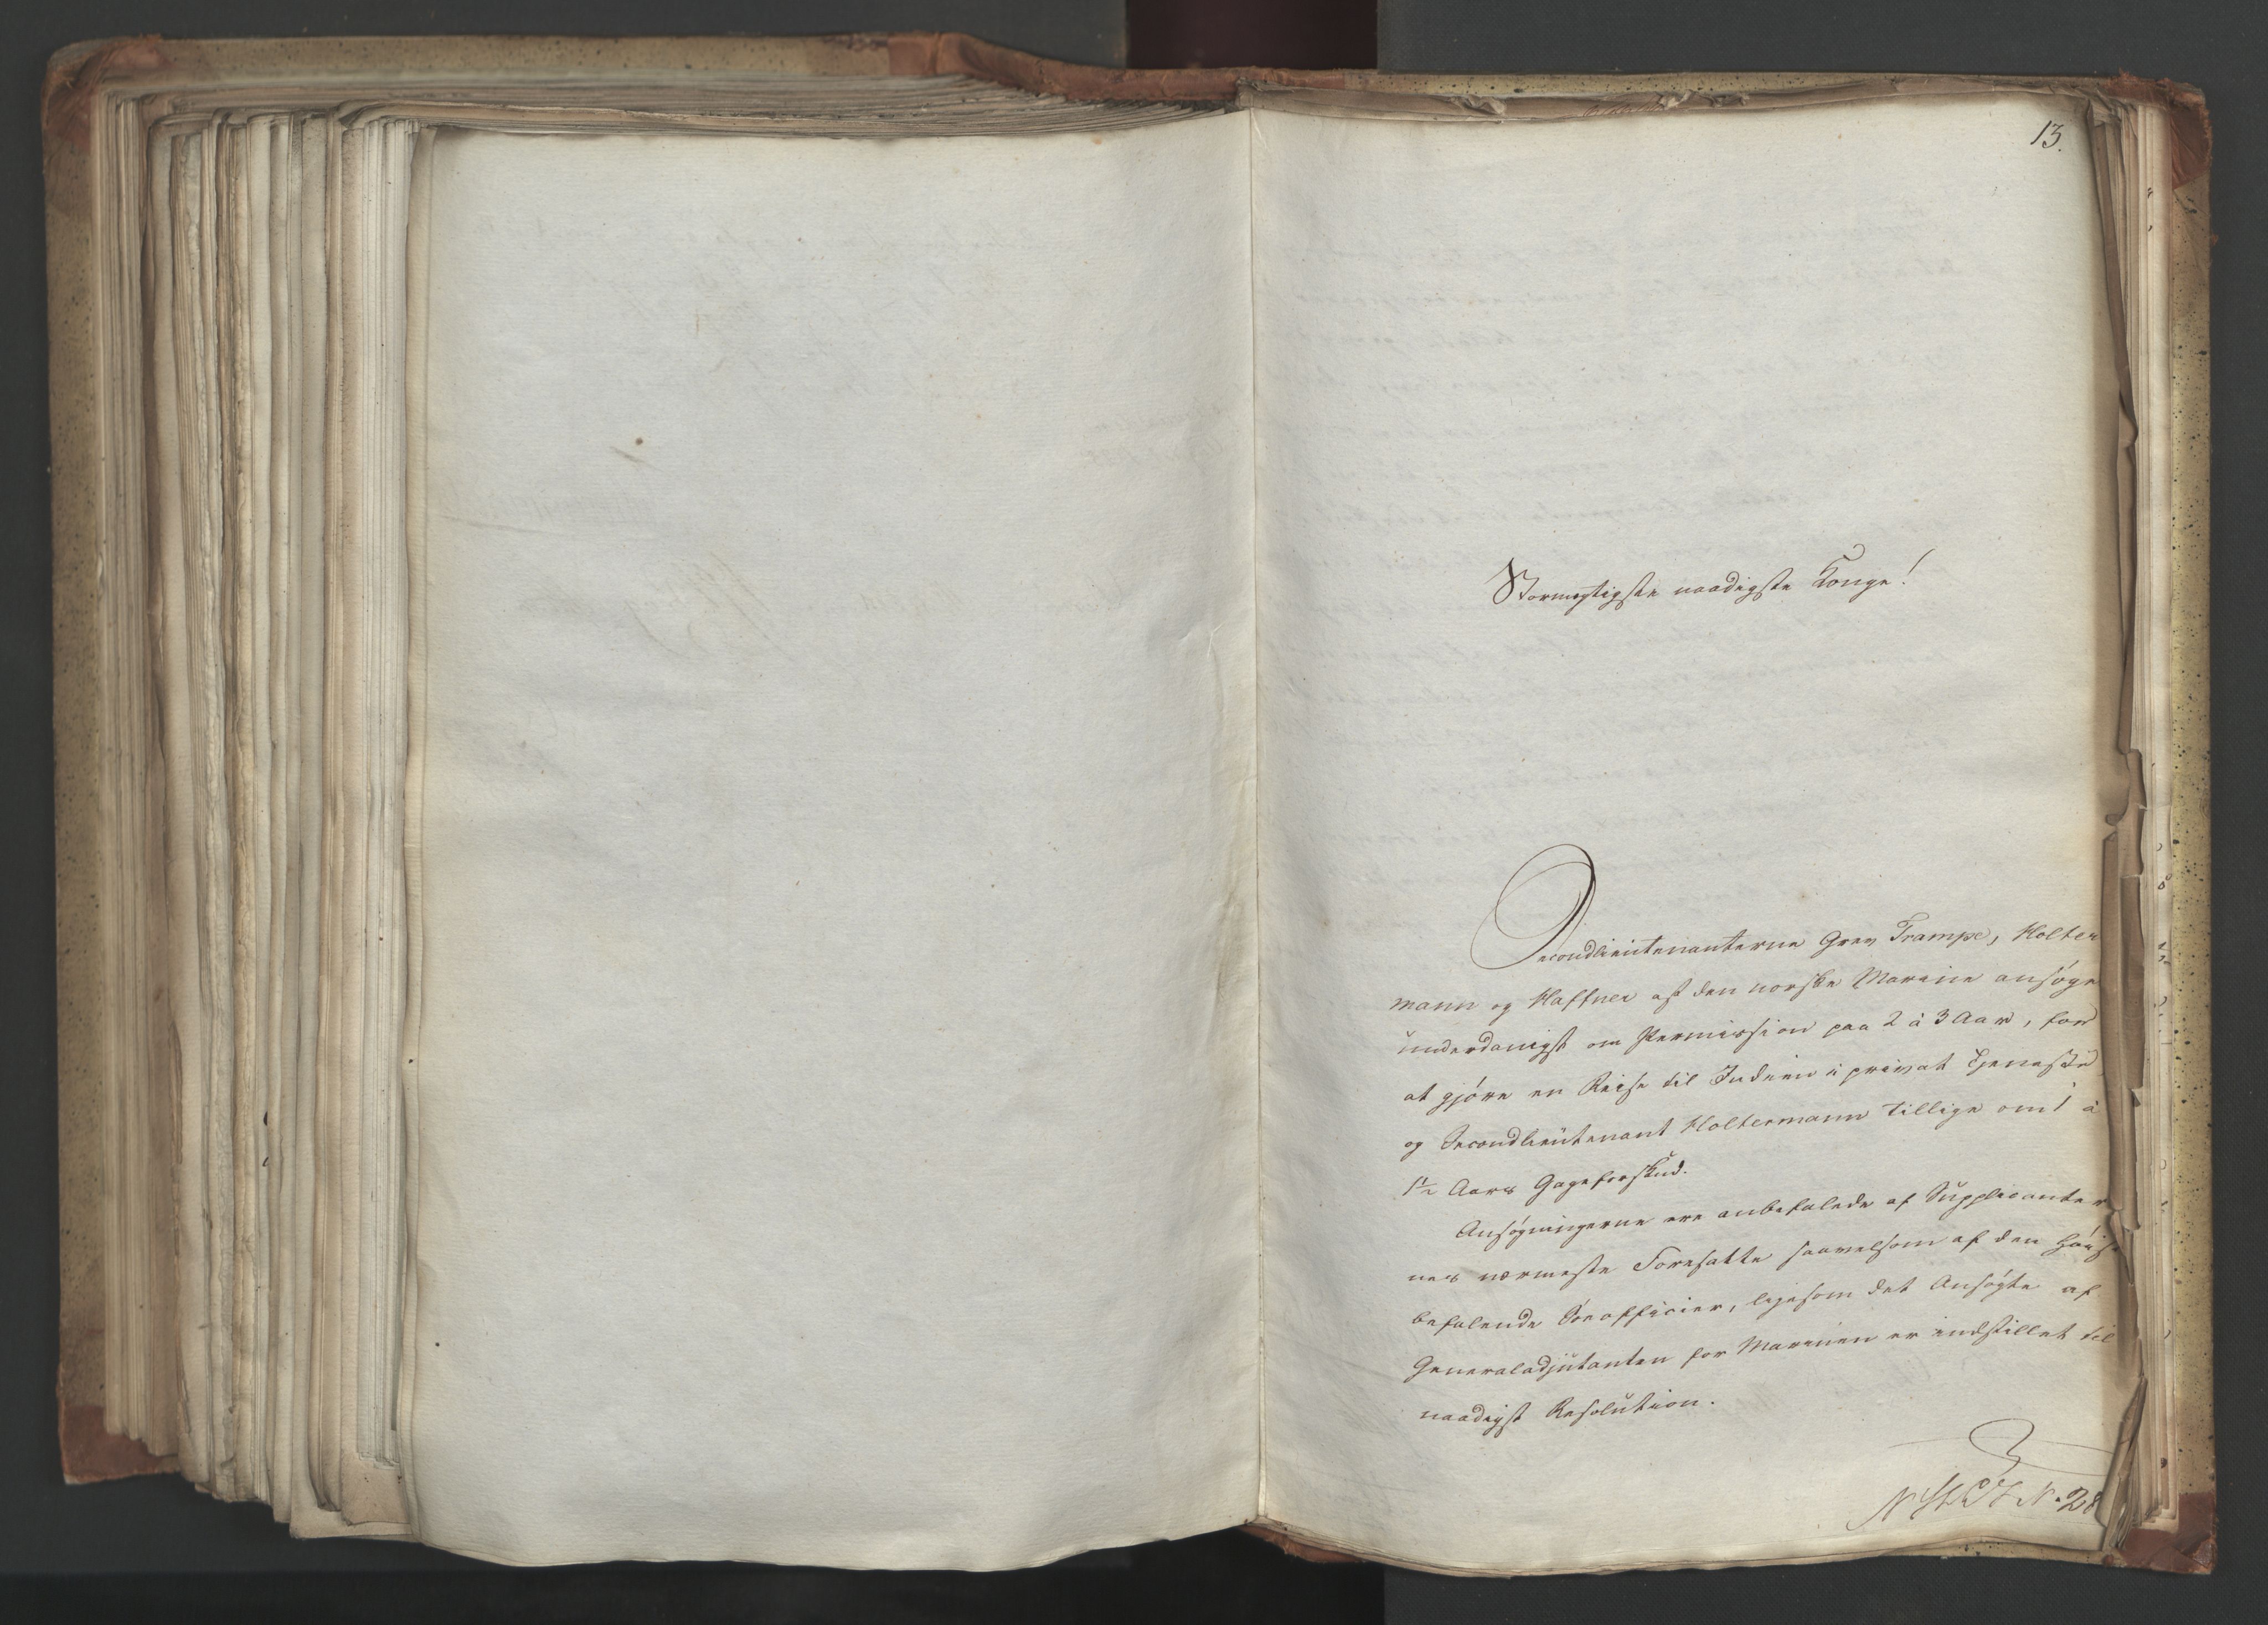 13.
Stormægtigste naadigste Konge!
Secondlieutenanterne Grev Trampe, Holter
mann og Haffner af den norske Marine ansøge
underdanigst om Permission paa 2 à 3 Aar, for
at gjøre en Reise til Indien i privat Tjeneste
og Secondlieutenant Holtermann tillige om 1 à
1½ Aars Gageforskud.
Ansøgningerne ere anbefalede af Supplicanter
nes nærmeste Foresatte saavelsom af den Høist
befalende Søeofficier, ligesom det Ansøgte af
Generaladjutanten for Marinen er indstillet til
naadigst Resolution.